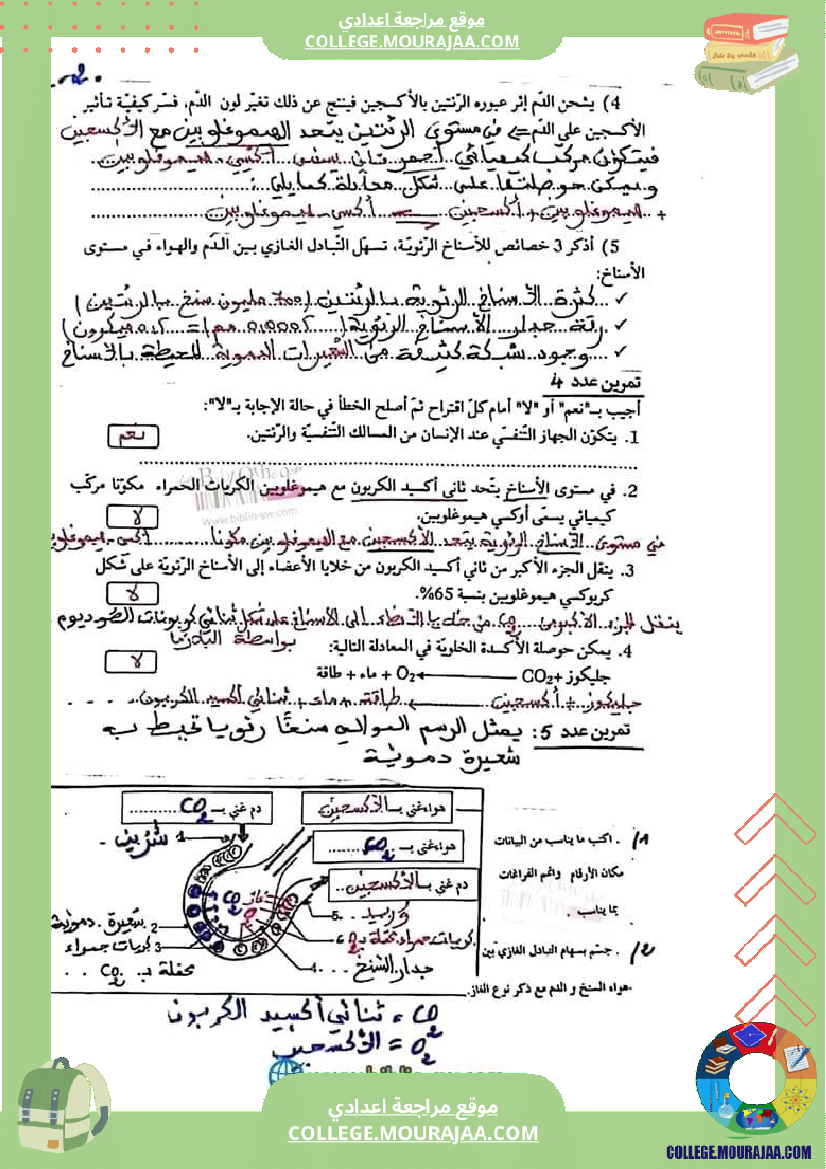 موقع مراجعة اعدادي
COLLEGE.MOURAJAA.COM
-2-
4) يشحن الدّم إثر عبوره الرّئتين بالأكسجين فينتج عن ذلك تغيّر لون الدّم، فسّر كيفيّة تأثير
الأكجين على الدّم ⇐ في مستوى الرئتين يتحد الهيموغلوبين مع الأكسجين
فيتكوّن مركب كيميائي أحمر قاني يسمى أكسي-هيموغلوبين
ويمكن حوصلتها على شكل معادلة كما يلي:
هيموغلوبين + أكسجين ← أكسي-هيموغلوبين
5) أذكر 3 خصائص للأسناخ الرّئويّة، تسهّل التّبادل الغازي بين الدّم والهواء في مستوى
الأسناخ:
✓ كثرة الأسناخ الرئوية بالرئتين (700 مليون سنخ بالرئتين)
✓ رقة جدار الأسناخ الرئوية (0,0002 مم = 0,2 ميكرون)
✓ وجود شبكة كثيفة من الشعيرات الدموية المحيطة بالأسناخ
تمرين عدد 4
أجيب بـ"نعم" أو "لا" أمام كلّ اقتراح ثمّ أصلح الخطأ في حالة الإجابة بـ"لا":
1. يتكوّن الجهاز التّنفسي عند الإنسان من المسالك التّنفسيّة والرّئتين.
نعم
2. في مستوى الأسناخ يتّحد ثاني أكسيد الكربون مع هيموغلوبين الكريات الحمراء مكوّنا مركّب
كيميائي يسمّى أوكسي هيموغلوبين.
لا
www.biblio-sw.com
في مستوى الأسناخ الرئوية يتحد الأكسجين مع الهيموغلوبين مكونا أكسي-هيموغلوبين
3. ينقل الجزء الأكبر من ثاني أكسيد الكربون من خلايا الأعضاء إلى الأسناخ الرّئويّة على شكل
كربوكسي هيموغلوبين بنسبة 65%.
لا
ينقل الجزء الأكبر من CO2 من خلايا الأعضاء إلى الأسناخ على شكل ثنائي كربونات الصوديوم
بواسطة البلازما
4. يمكن حوصلة الأكسدة الخلويّة في المعادلة التالية:
لا
جليكوز +CO2 ← O2 + ماء + طاقة
جليكوز + أكسجين ← طاقة + ماء + ثنائي أكسيد الكربون
تمرين عدد 5: يمثل الرسم الموالي سنخًا رئويا تحيط به
شعيرة دموية
دم غني بـ CO2
هواء غني بـ الأكسجين
1/ . اكتب ما يناسب من البيانات
هواء غني بـ CO2
1 شريين
مكان الأرقام واتمم الفراغات
دم غني بـ الأكسجين
بما يناسب .
غاز
CO2
O2
5 وريد
2 شعيرة دموية
6 كريات حمراء محملة بـ O2
3 كريات حمراء
محملة بـ CO2
4 جدار السنخ
2/ . جسّم بسهام التبادل الغازي بين
هواء السنخ و الدم مع ذكر نوع الغاز.
CO2 = ثنائي أكسيد الكربون
O2 = الأكسجين
موقع مراجعة اعدادي
COLLEGE.MOURAJAA.COM
COLLEGE.MOURAJAA.COM